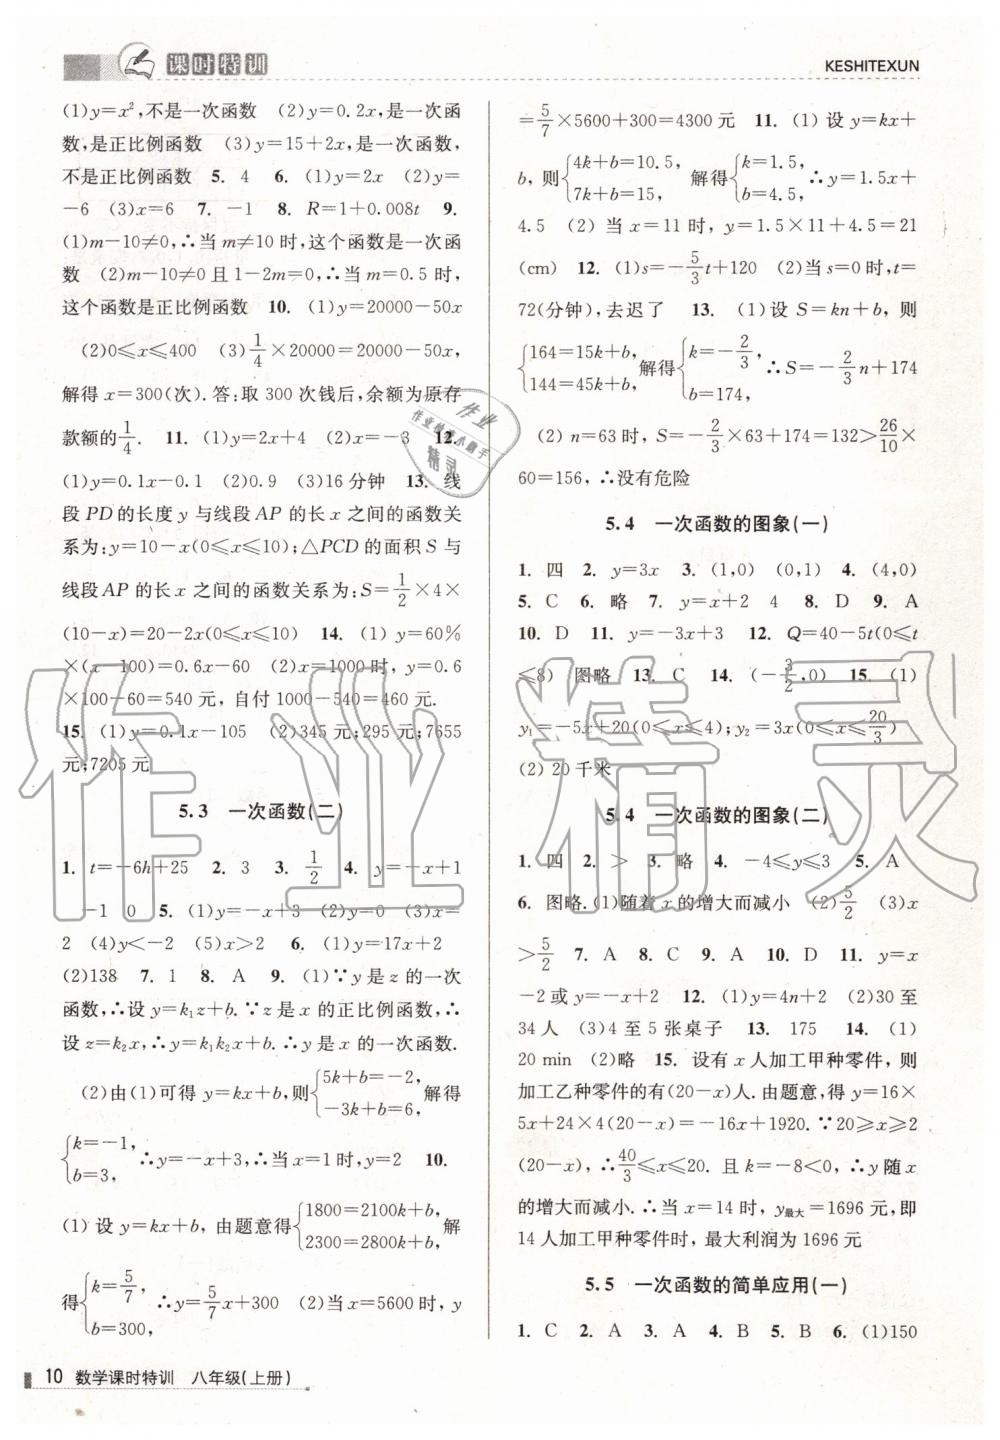 课时特训
KESHITEXUN
(1)y=x²,不是一次函数 (2)y=0.2x,是一次函
数,是正比例函数 (3)y=15+2x,是一次函数,
不是正比例函数 5. 4 6. (1)y=2x (2)y=
-6 (3)x=6 7. -1 8. R=1+0.008t 9.
(1)m-10≠0,∴当m≠10时,这个函数是一次函
数 (2)m-10≠0且1-2m=0,∴当m=0.5时,
这个函数是正比例函数 10. (1)y=20000-50x
(2)0≤x≤400 (3)1/4×20000=20000-50x,
解得x=300(次).答:取300次钱后,余额为原存
款额的1/4. 11. (1)y=2x+4 (2)x=-3 12.
(1)y=0.1x-0.1 (2)0.9 (3)16分钟 13. 线
段PD的长度y与线段AP的长x之间的函数关
系为:y=10-x(0≤x≤10);△PCD的面积S与
线段AP的长x之间的函数关系为:S=1/2×4×
(10-x)=20-2x(0≤x≤10) 14. (1)y=60%
×(x-100)=0.6x-60 (2)x=1000时,y=0.6
×100-60=540元,自付1000-540=460元.
15. (1)y=0.1x-105 (2)345元;295元;7655
元;7205元
5.3 一次函数(二)
1. t=-6h+25 2. 3 3. 1/2 4. y=-x+1
-1 0 5. (1)y=-x+3; (2)y=0 (3)x=
2 (4)y<-2 (5)x>2 6. (1)y=17x+2
(2)138 7. 1 8. A 9. (1)∵y是z的一次
函数,∴设y=k₁z+b.∵z是x的正比例函数,∴
设z=k₂x,∴y=k₁k₂x+b.∴y是x的一次函数.
(2)由(1)可得y=kx+b,则{5k+b=-2, -3k+b=6, 解得
{k=-1, b=3, ∴y=-x+3,∴当x=1时,y=2 10.
(1)设y=kx+b,由题意得{1800=2100k+b, 2300=2800k+b, 解
得{k=5/7, b=300, ∴y=5/7x+300 (2)当x=5600时,y
=5/7×5600+300=4300元 11. (1)设y=kx+
b,则{4k+b=10.5, 7k+b=15, 解得{k=1.5, b=4.5, ∴y=1.5x+
4.5 (2)当x=11时,y=1.5×11+4.5=21
(cm) 12. (1)s=-5/3t+120 (2)当s=0时,t=
72(分钟),去迟了 13. (1)设S=kn+b,则
{164=15k+b, 144=45k+b, 解得{k=-2/3, b=174, ∴S=-2/3n+174
(2)n=63时,S=-2/3×63+174=132>26/10×
60=156,∴没有危险
5.4 一次函数的图象(一)
1. 四 2. y=3x 3. (1,0) (0,1) 4. (4,0)
5. C 6. 略 7. y=x+2 4 8. D 9. A
10. D 11. y=-3x+3 12. Q=40-5t(0≤t
≤8) 图略 13. C 14. (-3/2,0) 15. (1)
y₁=-5x+20(0≤x≤4);y₂=3x(0≤x≤20/3)
(2)20千米
5.4 一次函数的图象(二)
1. 四 2. > 3. 略 4. -4≤y≤3 5. A
6. 图略.(1)随着x的增大而减小 (2)5/2 (3)x
>5/2 7. A 8. C 9. A 10. D 11. y=x
-2或y=-x+2 12. (1)y=4n+2 (2)30至
34人 (3)4至5张桌子 13. 175 14. (1)
20 min (2)略 15. 设有x人加工甲种零件,则
加工乙种零件的有(20-x)人.由题意,得y=16×
5x+24×4(20-x)=-16x+1920.∵20≥x≥2
(20-x),∴40/3≤x≤20. 且k=-8<0,∴y随x
的增大而减小.∴当x=14时,y最大=1696元,即
14人加工甲种零件时,最大利润为1696元
5.5 一次函数的简单应用(一)
1. C 2. A 3. A 4. B 5. B 6. (1)150
10 数学课时特训 八年级(上册)
作业精灵
作业
精灵